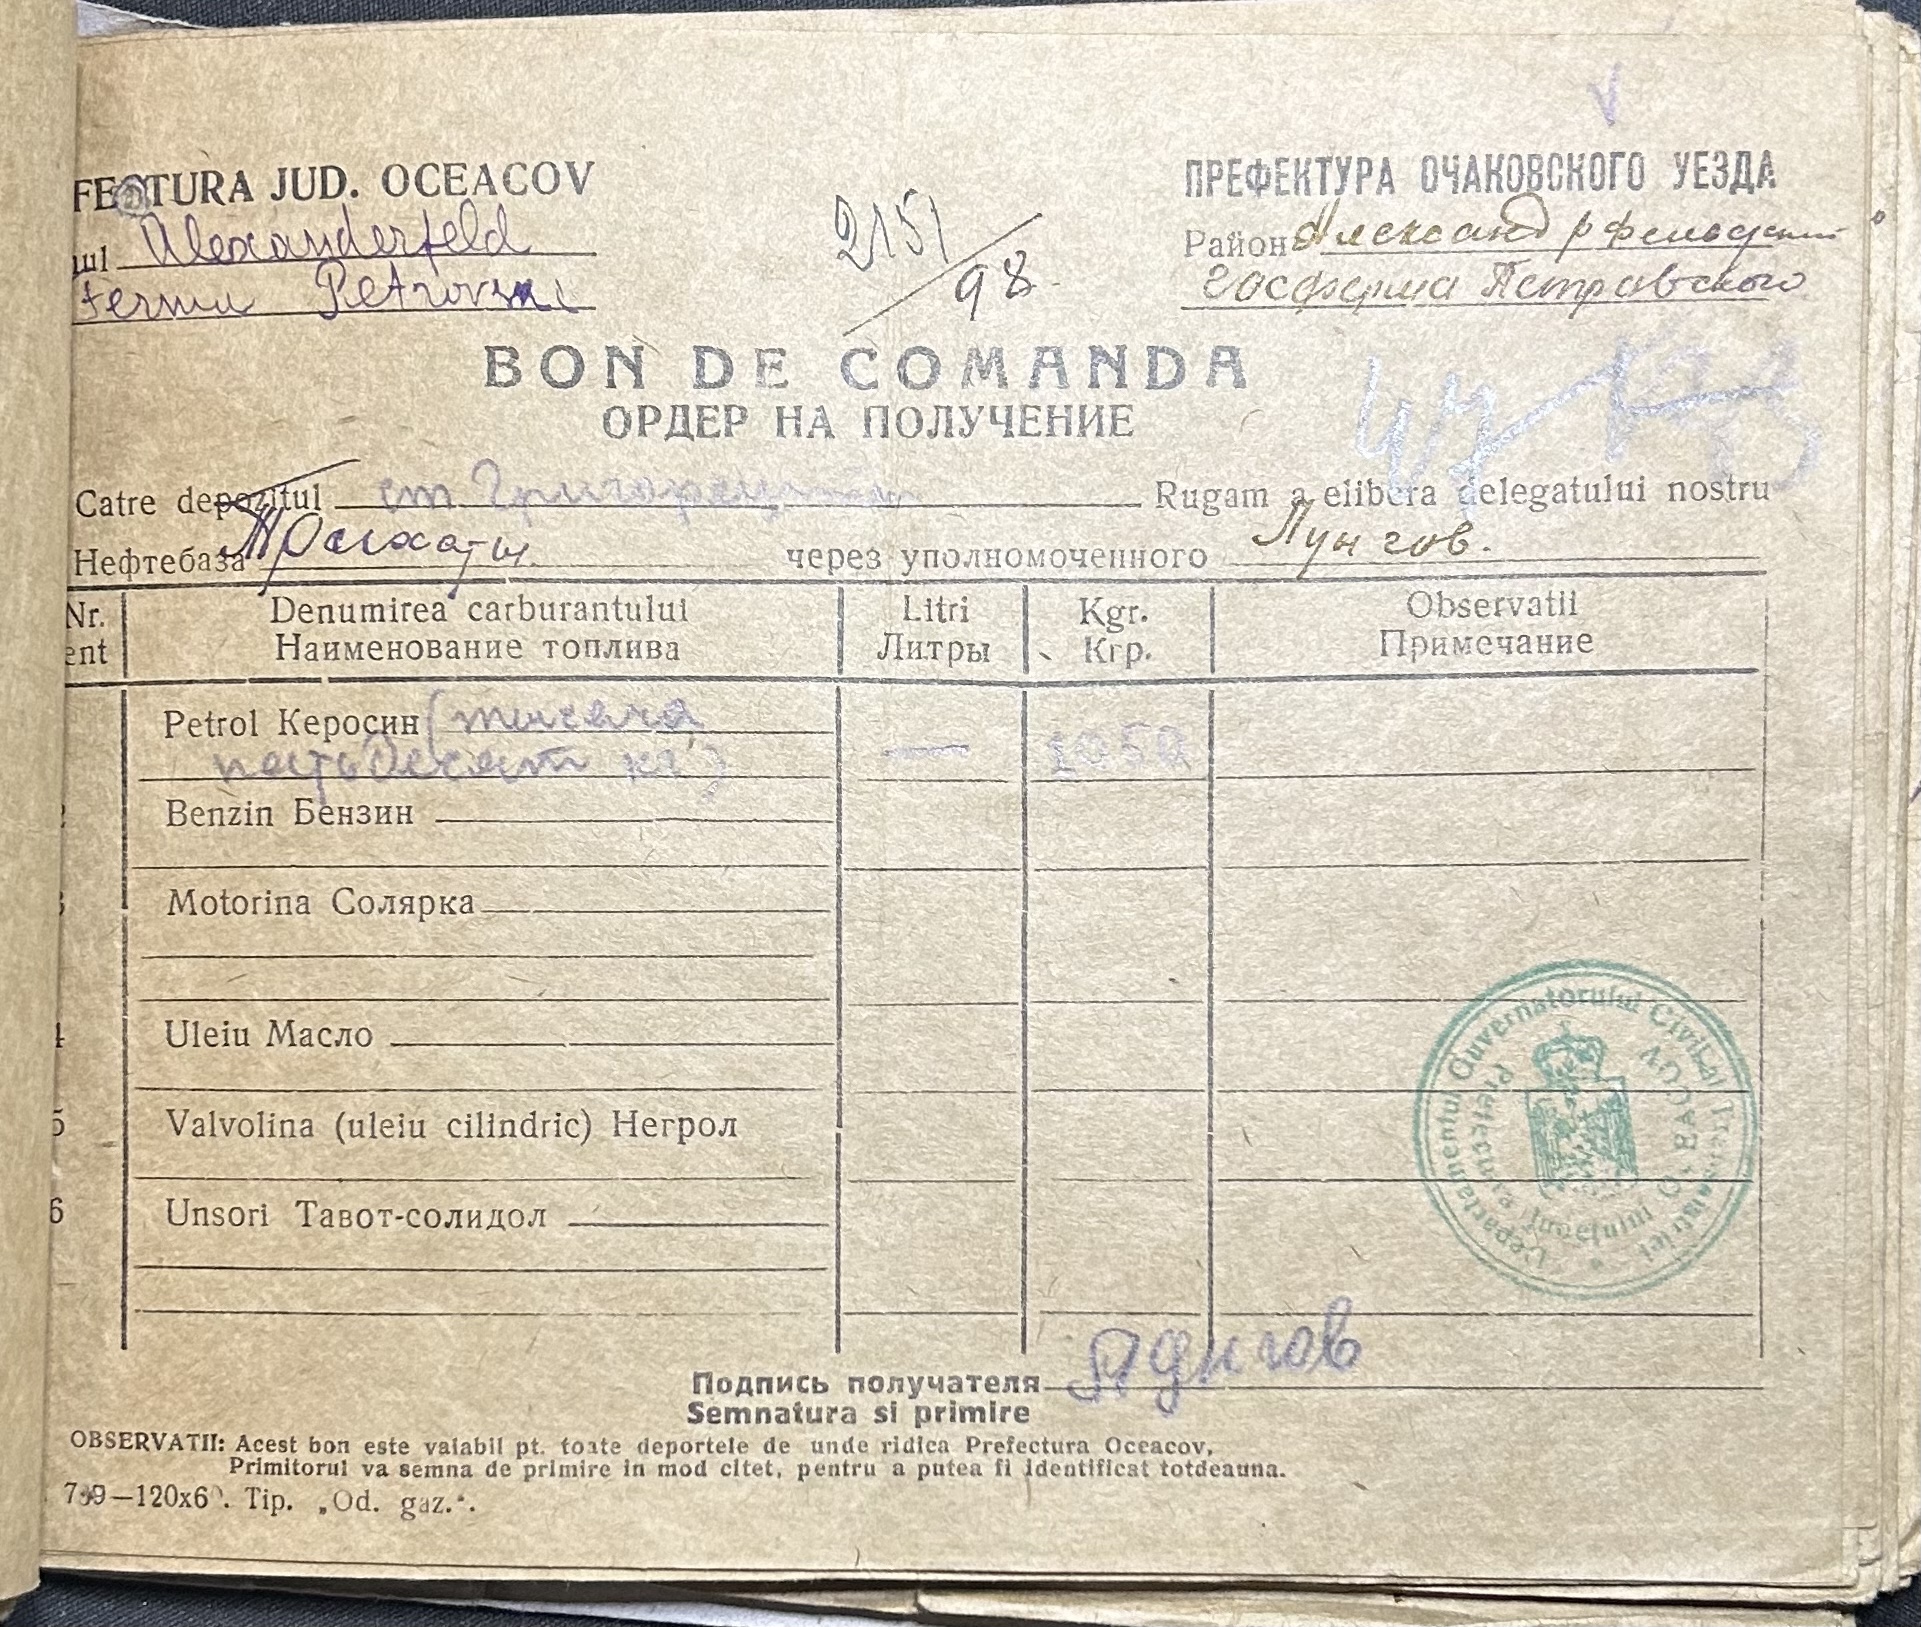 FECTURA JUD. OCEACOV
ПРЕФЕКТУРА ОЧАКОВСКОГО УЕЗДА
ul Alexanderfeld
2151/98
Район Александрфельдский
Ferma Petrovski
Госферма Петровского
BON DE COMANDA
ОРДЕР НА ПОЛУЧЕНИЕ
Catre depozitul ст Rugam a elibera delegatului nostru
Нефтебаза через уполномоченного Лунгов.
Nr. Denumirea carburantului Litri Kgr. Observatii
ent Наименование топлива Литры Кгр. Примечание
Petrol Керосин (тысяча
пятьдесят кг) — 1050
Benzin Бензин
3 Motorina Солярка
4 Uleiu Масло
5 Valvolina (uleiu cilindric) Негрол
6 Unsori Тавот-солидол
Departamentul Guvernatorului Civil al Transnistriei
Prefectura Județului OCEACOV
Подпись получателя
Semnatura si primire
OBSERVATII: Acest bon este valabil pt. toate deportele de unde ridica Prefectura Oceacov.
Primitorul va semna de primire in mod citet, pentru a putea fi identificat totdeauna.
Tip. „Od. gaz.“.